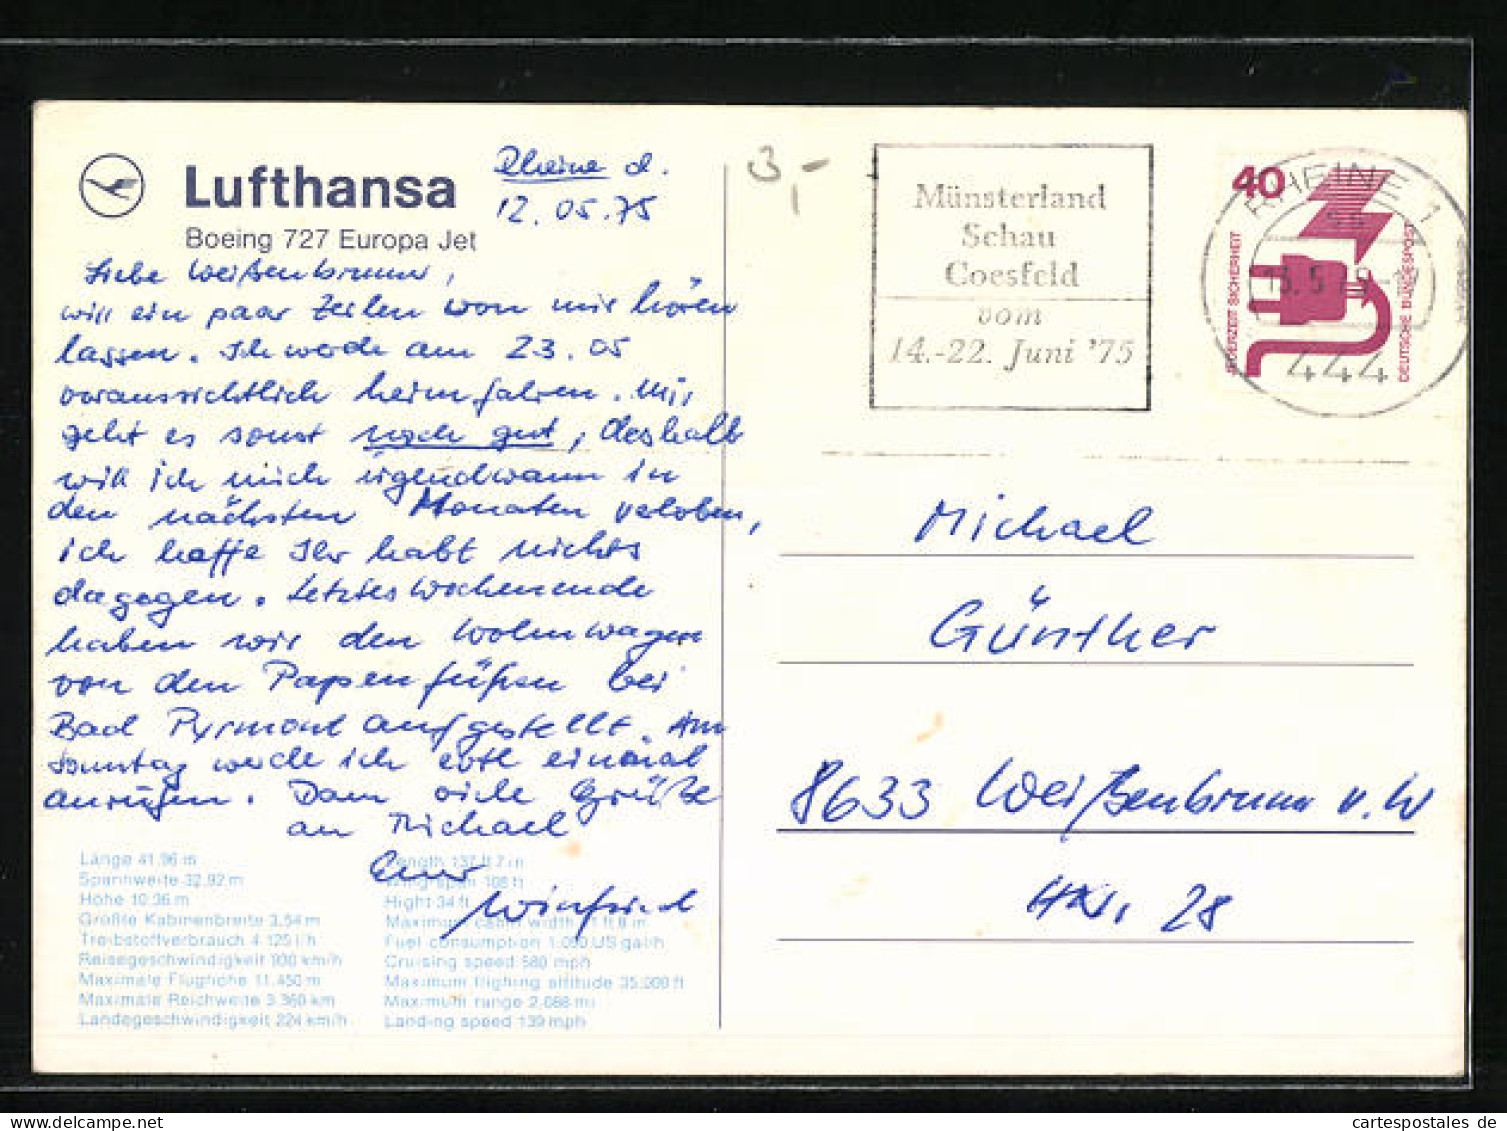 Lufthansa
Boeing 727 Europa Jet
Rheine d.
12.05.75
Liebe Weißenbrunner,
will ein paar Zeilen von mir hören
lassen. Ich werde am 23.05
voraussichtlich heimfahren. Mir
geht es sonst noch gut, deshalb
will ich mich irgendwann in
den nächsten Monaten veloben,
ich hoffe Ihr habt nichts
dagegen. Letztes Wochenende
haben wir den Wohnwagen
von den Papenfüßen bei
Bad Pyrmont aufgestellt. Am
Sonntag werde ich evtl einmal
anrufen. Dann viele Grüße
an Michael
Euer
Winfried
Länge 41.96 m
Spannweite 32.92 m
Höhe 10.36 m
Größte Kabinenbreite 3.54 m
Treibstoffverbrauch 4.125 l/h
Reisegeschwindigkeit 930 km/h
Maximale Flughöhe 11.450 m
Maximale Reichweite 3.360 km
Landegeschwindigkeit 224 km/h
Length 137 ft 7 in
Wingspan 108 ft
Hight 34 ft
Maximum cabin width 11 ft 8 in
Fuel consumption 1.090 US gal/h
Cruising speed 580 mph
Maximum flighing altitude 35.000 ft
Maximum range 2.088 mi
Landing speed 139 mph
3,-
Münsterland
Schau
Coesfeld
vom
14.-22. Juni '75
40
JEDERZEIT SICHERHEIT
DEUTSCHE BUNDESPOST
RHEINE 1
13.5.75-17
444
Michael
Günther
8633 Weißenbrunn v. W
Hnr. 28
www.oldthing.net
cartespostales ✦ de